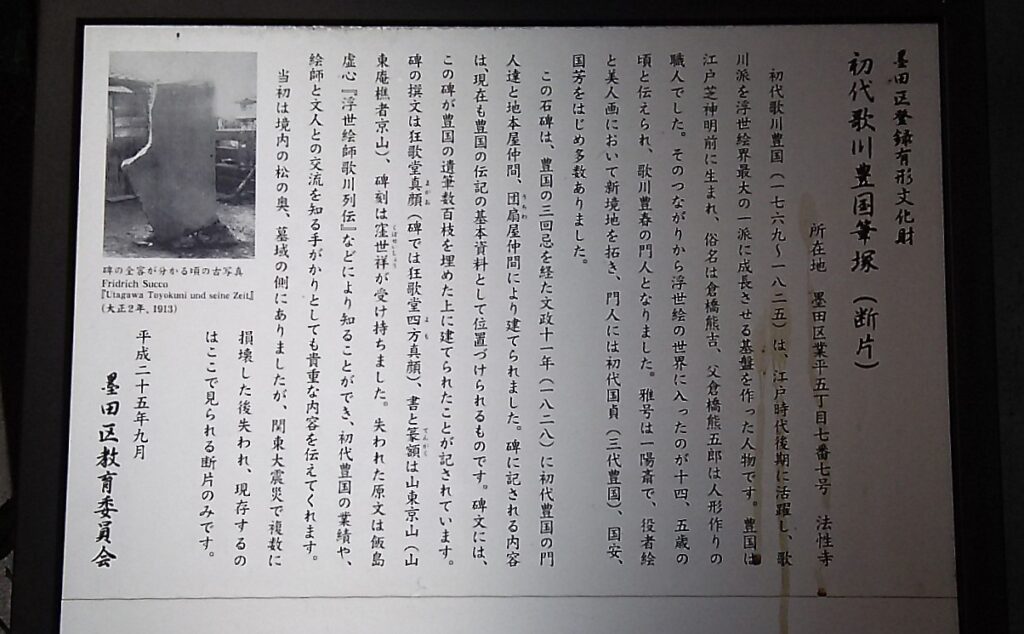 墨田区登録有形文化財
初代歌川豊国筆塚（断片）
所在地　墨田区業平五丁目七番七号　法性寺
初代歌川豊国（一七六九〜一八二五）は、江戸時代後期に活躍し、歌
川派を浮世絵界最大の一派に成長させる基盤を作った人物です。豊国は
江戸芝神明前に生まれ、俗名は倉橋熊吉、父倉橋熊五郎は人形作りの
職人でした。そのつながりから浮世絵の世界に入ったのが十四、五歳の
頃と伝えられ、歌川豊春の門人となりました。雅号は一陽斎で、役者絵
と美人画において新境地を拓き、門人には初代国貞（三代豊国）、国安、
国芳をはじめ多数ありました。
この石碑は、豊国の三回忌を経た文政十一年（一八二八）に初代豊国の門
人達と地本屋仲間、団扇屋仲間により建てられました。碑に記される内容
は、現在も豊国の伝記の基本資料として位置づけられるものです。碑文には、
この碑が豊国の遺筆数百枝を埋めた上に建てられたことが記されています。
碑の撰文は狂歌堂真顔（碑では狂歌堂四方真顔）、書と篆額は山東京山（山
東庵樵者京山）、碑刻は窪世祥が受け持ちました。失われた原文は飯島
虚心『浮世絵師歌川列伝』などにより知ることができ、初代豊国の業績や、
絵師と文人との交流を知る手がかりとしても貴重な内容を伝えてくれます。
当初は境内の松の奥、墓域の側にありましたが、関東大震災で複数に
損壊した後失われ、現存するの
はここで見られる断片のみです。
平成二十五年九月
墨田区教育委員会
碑の全容が分かる頃の古写真
Fridrich Succo
『Utagawa Toyokuni und seine Zeit』
（大正2年、1913）